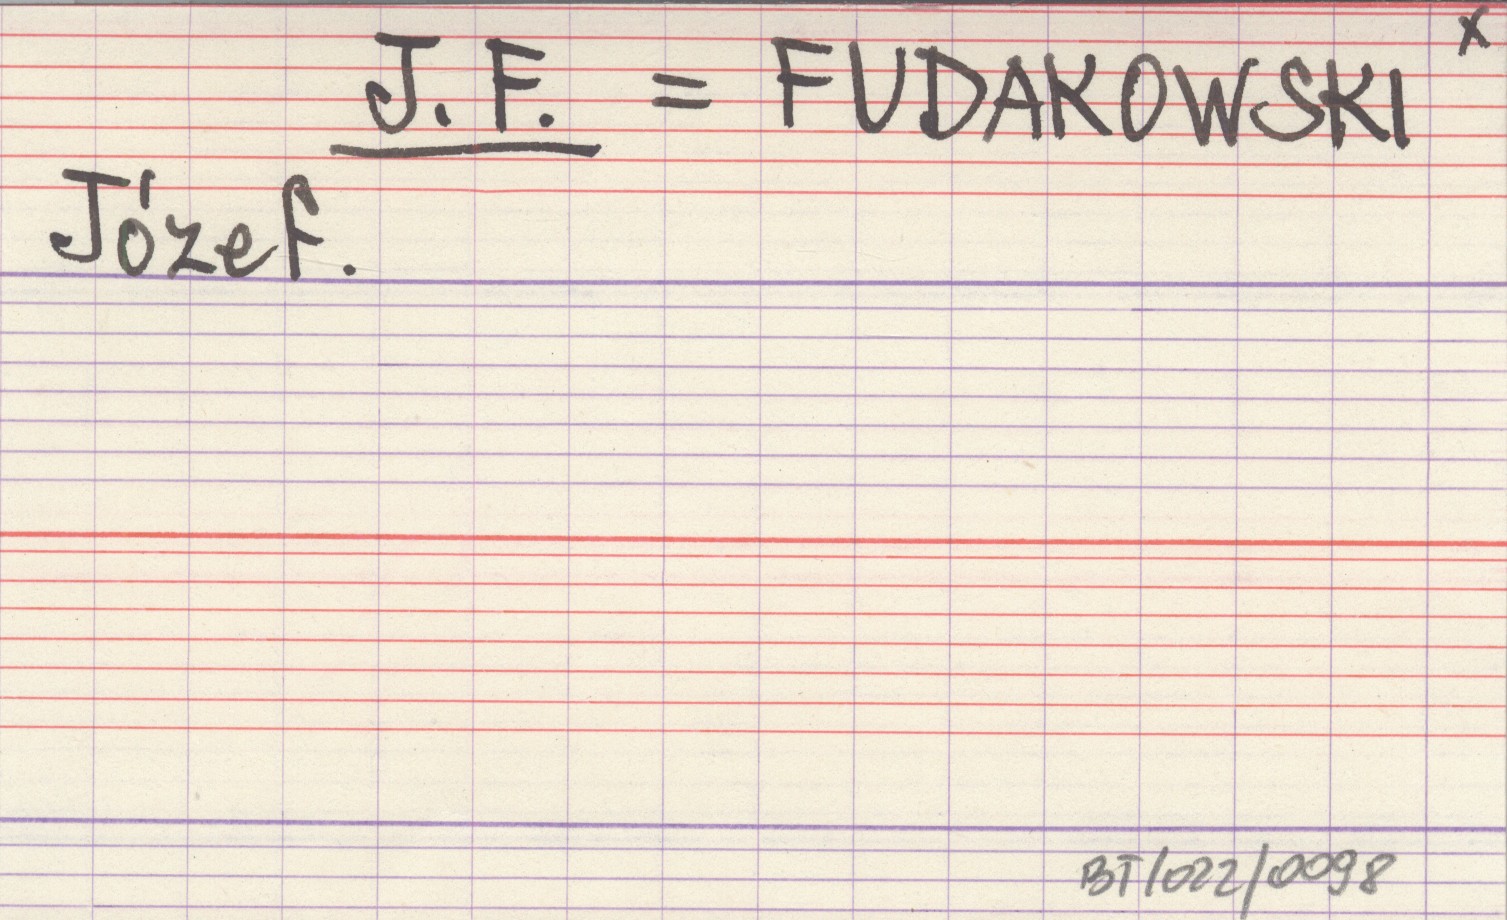 x
J. F. = FUDAKOWSKI
Józef.
BT/022/0098